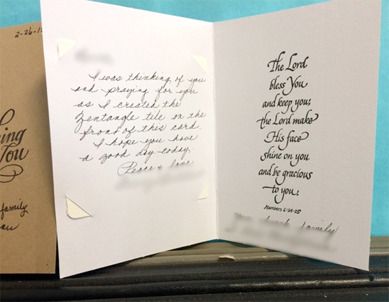 2-26-1
ing
You
family
I was thinking of you
and praying for you
as I created the
Zentangle tile on the
front of this card.
I hope you have
a good day today.
Peace & love
The Lord
bless You
and keep you;
the Lord make
His face
shine on you
and be gracious
to you;
Numbers 6:24-25
family